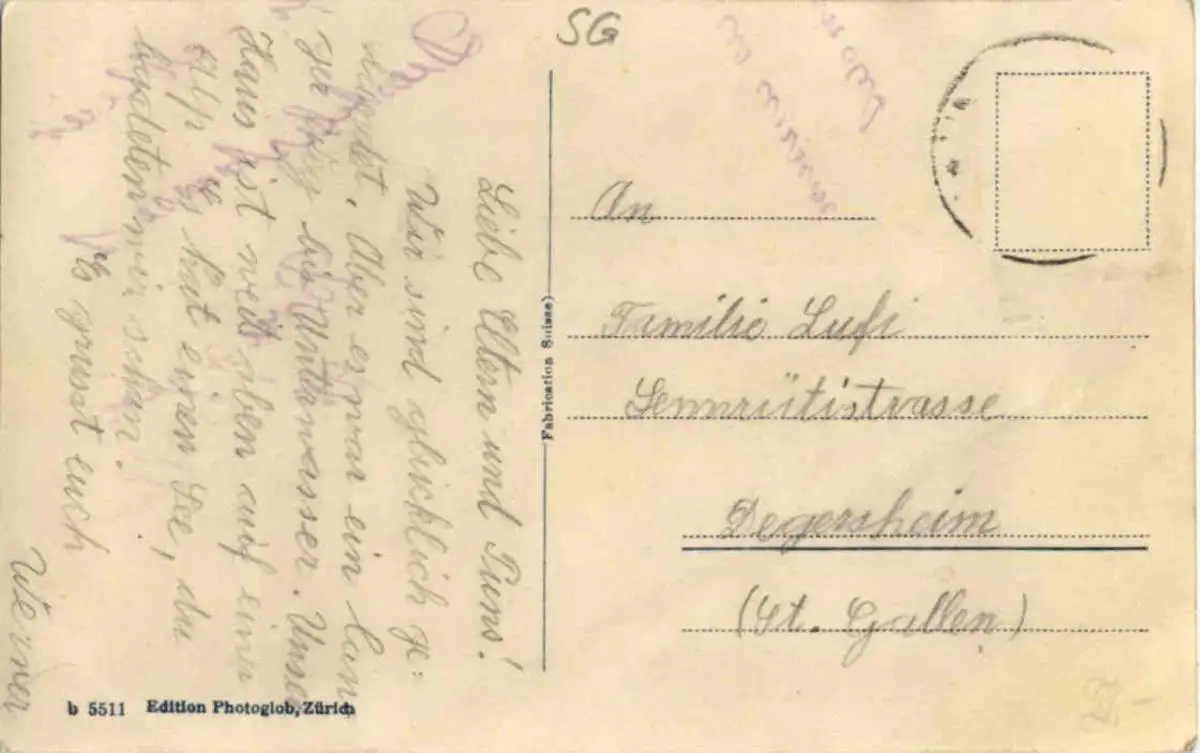 SG
Liebe Eltern und Tuns!
Wir sind glücklich ge=
landet. Aber er war ein lan=
ger bis Unterwasser. Unser
Haus ist weit oben auf einer
Alp. Es hat einen See, du
wir schon.
Es grüsst euch
Werner
An
Familie Lusi
Sennrütistrasse
Degersheim
(St. Gallen)
Fabrication Suisse)
b 5511 Edition Photoglob, Zürich